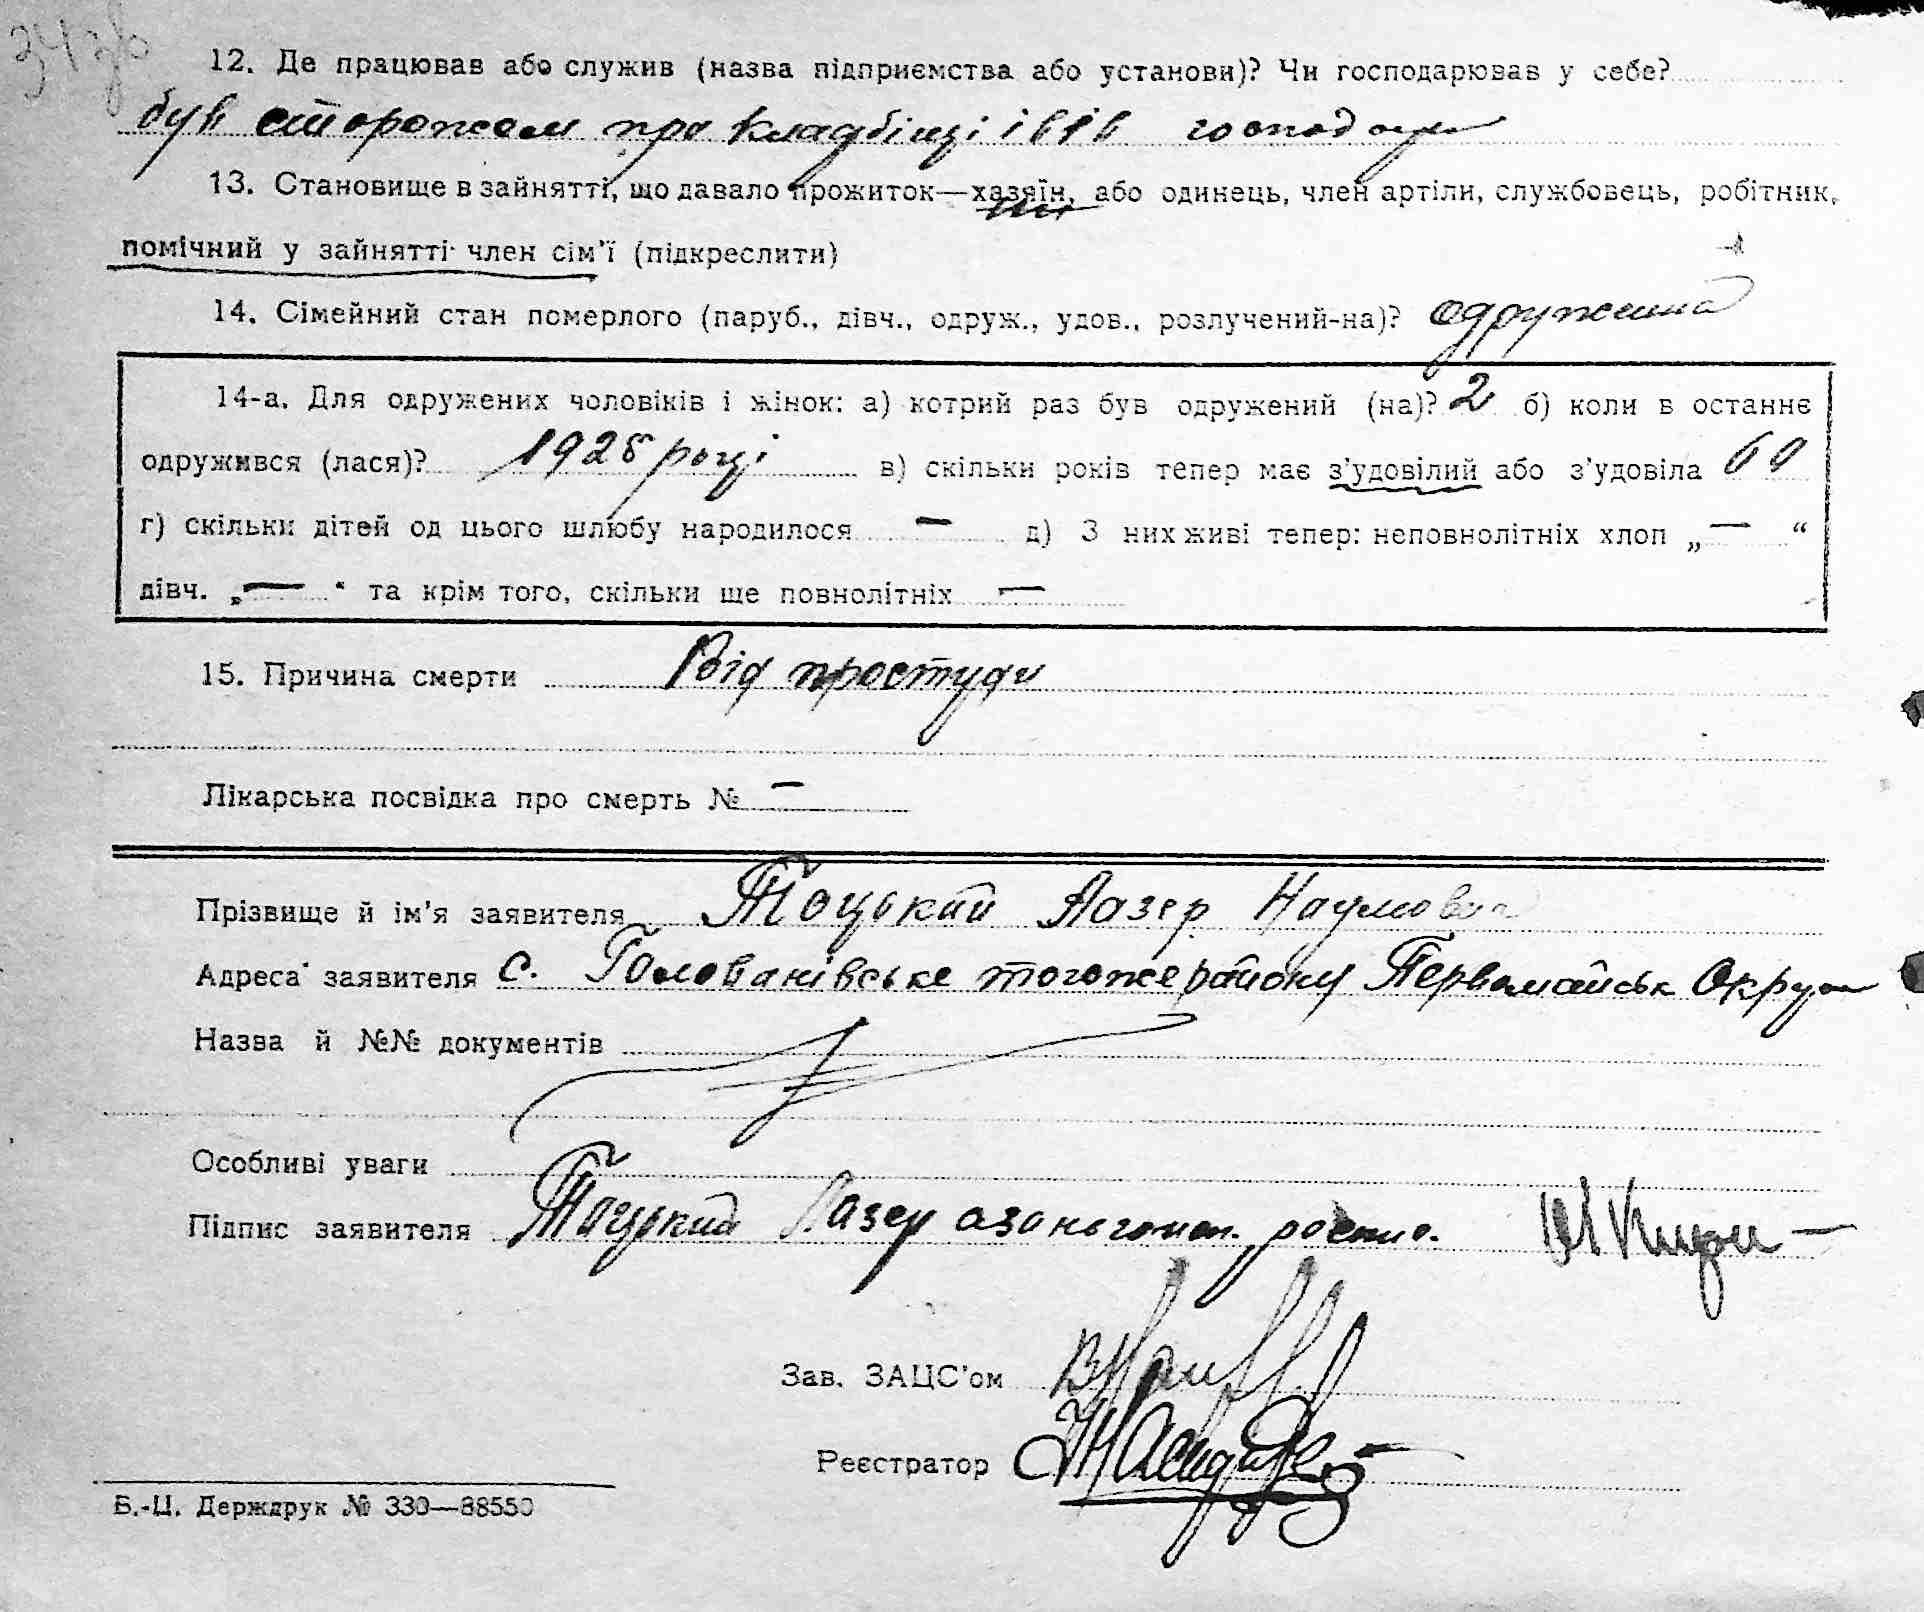 34зв
12. Де працював або служив (назва підприємства або установи)? Чи господарював у себе?
був сторожем про кладбіщі і вів господар
13. Становище в зайнятті, що давало прожиток—хазяїн, або одинець, член артіли, службовець, робітник,
помічний у зайнятті член сім'ї (підкреслити)
14. Сімейний стан померлого (паруб., дівч., одруж., удов., розлучений-на)? одружена
14-а. Для одружених чоловіків і жінок: а) котрий раз був одружений (на)? 2 б) коли в останнє
одружився (лася)? 1928 році в) скільки років тепер має з'удовілий або з'удовіла 60
г) скільки дітей од цього шлюбу народилося — д) З них живі тепер: неповнолітніх хлоп „—“
дівч. „—“ та крім того, скільки ще повнолітніх —
15. Причина смерти Від простуди
Лікарська посвідка про смерть № —
Прізвище й ім'я заявителя Тоцький Лазер Наумович
Адреса заявителя с. Голованівське тогоже району Первомайськ Округи
Назва й №№ документів
Особливі уваги
Підпис заявителя Тоцький Лазер
Зав. ЗАЦС'ом
Реєстратор
Б.-Ц. Держдрук № 330—88550